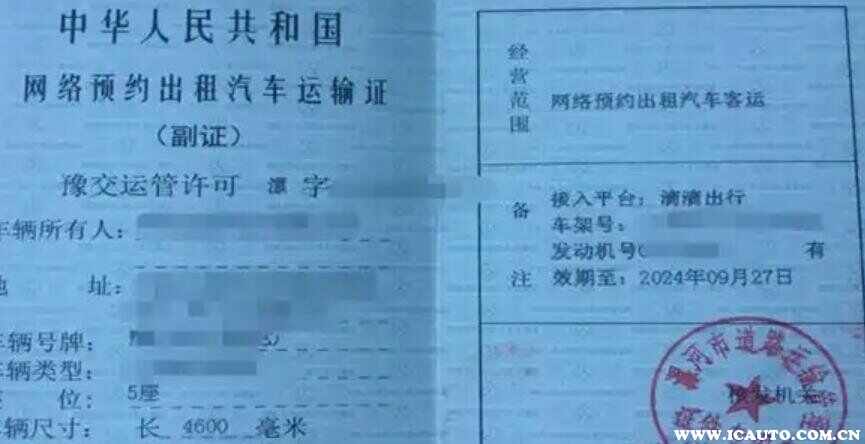 中华人民共和国
网络预约出租汽车运输证
（副证）
豫交运管许可 漯 字
车辆所有人：
地 址：
车辆号牌：
车辆类型：
座 位： 5座
车辆尺寸： 长 4600 毫米
经营范围
网络预约出租汽车客运
备注
接入平台：滴滴出行
车架号：
发动机号 有
效期至：2024年09月27日
核发机关
漯河市道路运输
www.ICAUTO.COM.CN